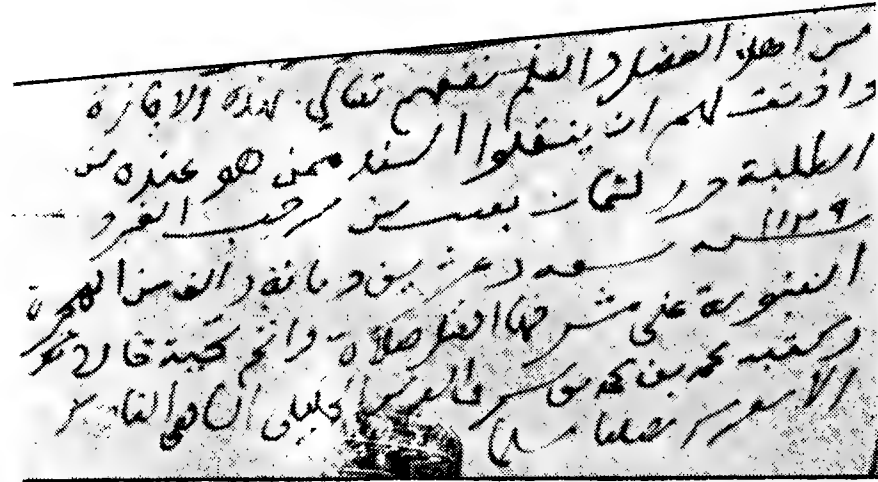 من اهل الفضل والعلم نفعهم تعالى بهذه الاجازة
واذنت لهم ان ينقلوا السند ممن هو عنده من
الطلبة حرر لثمان بقيت من رجب الفرد
سنة ١١٢٩ تسعة وعشرين ومائة والف من الهجرة
النبوية على مشرفها افضل صلاة واتم تحية قاله
وكتبه محمد بن محمد بن شرف الدين الخليلي الشافعي القادري
الاشعري مصليا مسلما